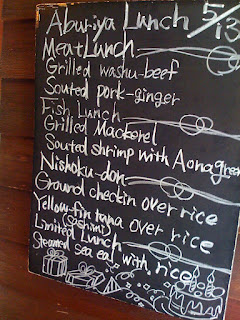 Aburiya Lunch 5/13
Meat Lunch
Grilled washu-beef
Souted pork-ginger
Fish Lunch
Grilled Mackerel
Souted shrimp with Aonagreen
Nishoku-don
Ground checkin over rice
Yellow-fin tuna over rice
(sashimi)
Limited Lunch
Steamed sea eel with rice